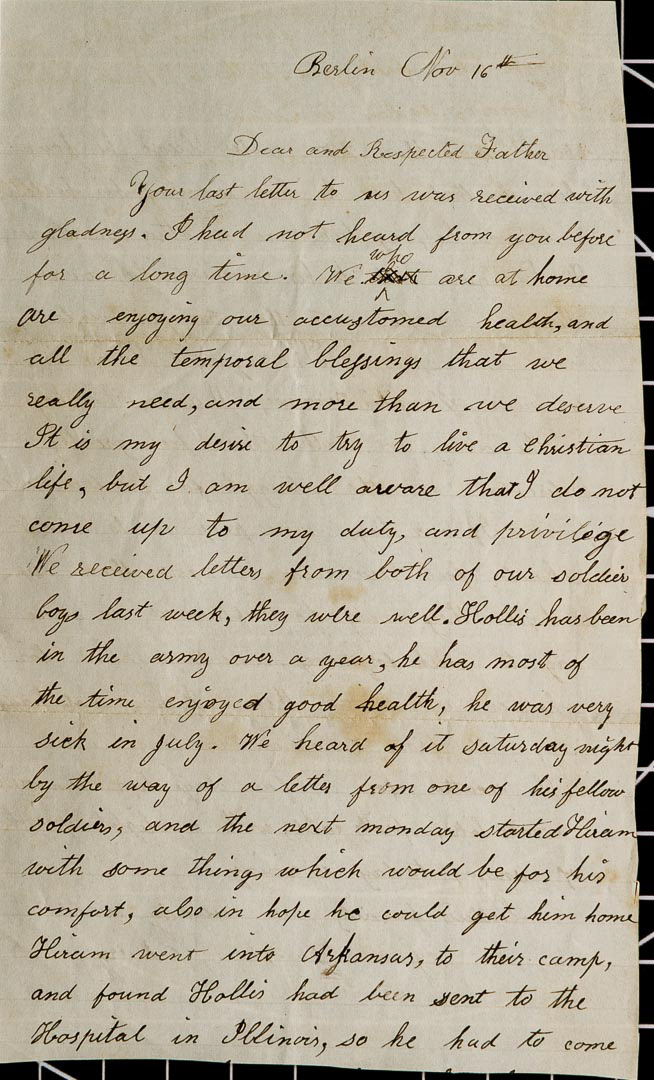 Berlin Nov 16th
Dear and Respected Father
Your last letter to us was received with
gladness. I had not heard from you before
for a long time. We who are at home
are enjoying our accustomed health, and
all the temporal blessings that we
really need, and more than we deserve
It is my desire to try to live a Christian
life, but I am well aware that I do not
come up to my duty, and privilege
We received letters from both of our soldier
boys last week, they were well. Hollis has been
in the army over a year, he has most of
the time enjoyed good health, he was very
sick in July. We heard of it saturday night
by the way of a letter from one of his fellow
soldiers, and the next monday started Hiram
with some things which would be for his
comfort, also in hope he could get him home
Hiram went into Arkansas, to their camp,
and found Hollis had been sent to the
Hospital in Illinois, so he had to come